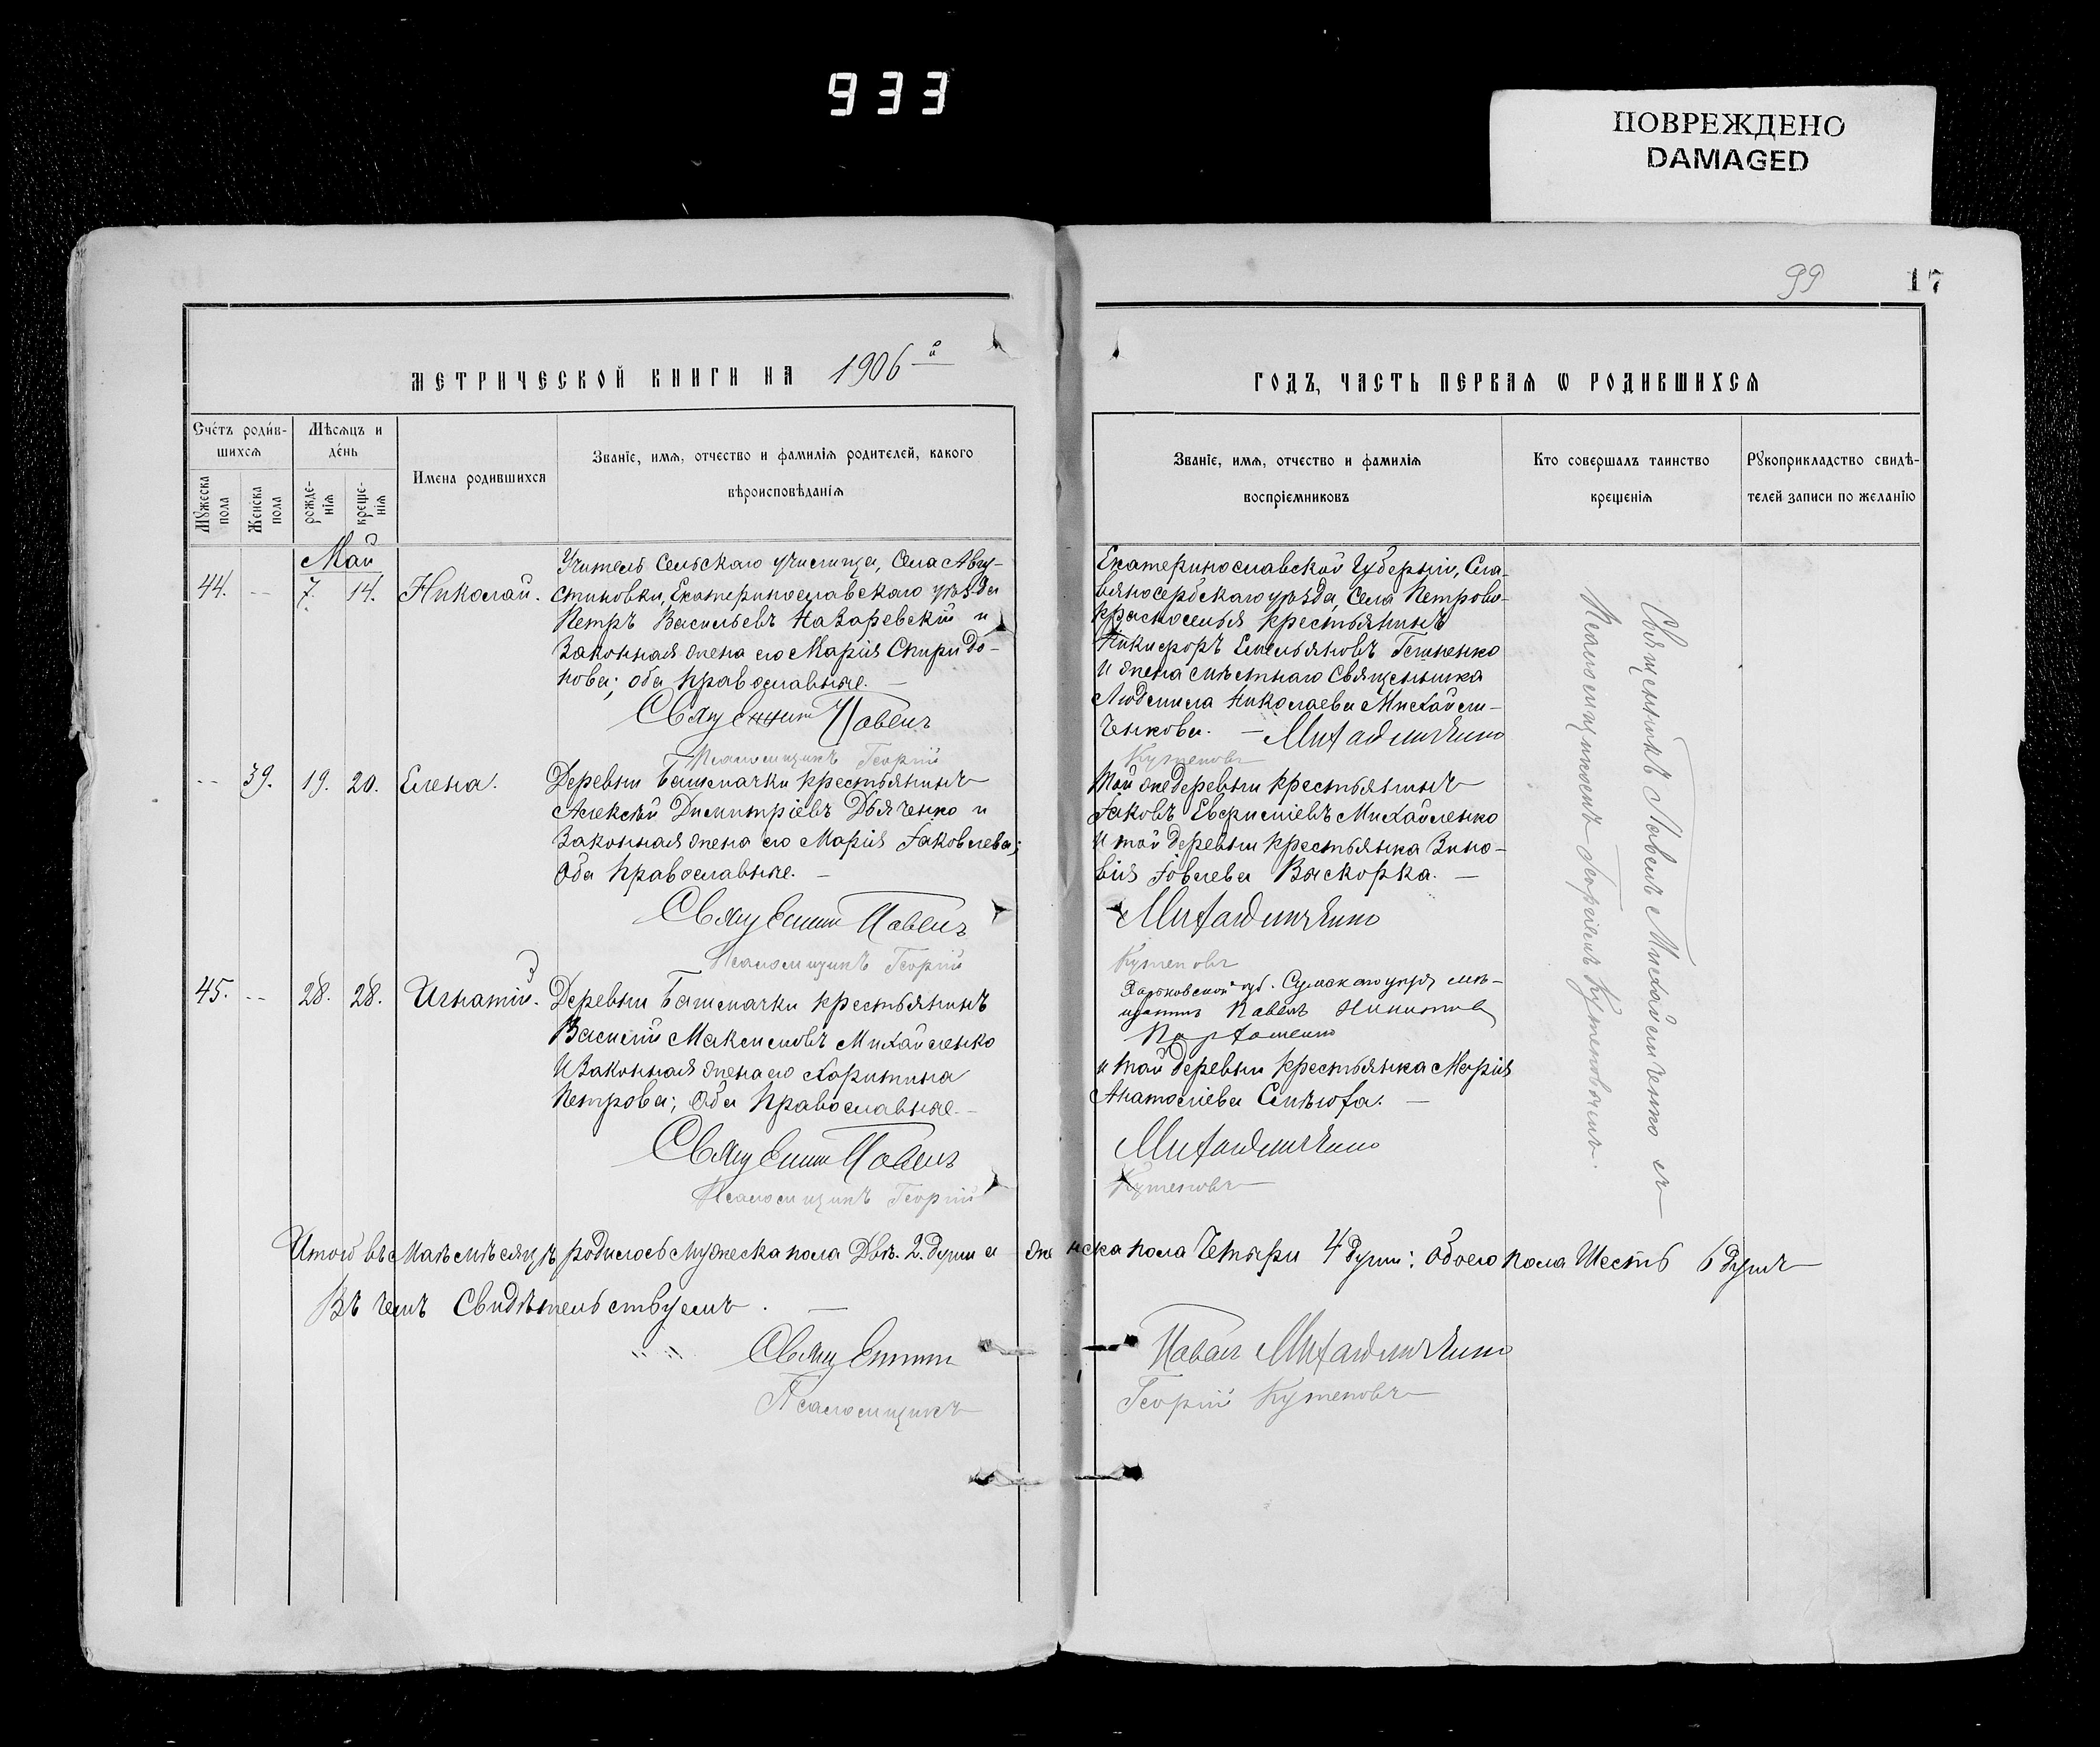 933
ПОВРЕЖДЕНО
DAMAGED
99
17
МЕТРИЧЕСКОЙ КНИГИ НА 1906й
ГОДЪ, ЧАСТЬ ПЕРВАЯ Ѡ РОДИВШИХСЯ
Счетъ родив-
шихся
Мужеска
пола
Женска
пола
Мѣсяцъ и
день
рожде-
нія
креще-
нія
Имена родившихся
Званіе, имя, отчество и фамилія родителей, какого
вѣроисповѣданія
Званіе, имя, отчество и фамилія
воспріемниковъ
Кто совершалъ таинство
крещенія
Рукоприкладство свидѣ-
телей записи по желанію
Май
44. -- 7. 14. Николай.
Учитель Сельскаго училища, Села Авгу-
стиновки, Екатеринославскаго уѣзда
Петръ Васильевъ Назаревскій и
Законная жена его Марія Спиридо-
нова; оба православные. —
Священникъ Павелъ
Псаломщикъ Георгій
Екатеринославской Губерніи, Сла-
вяносербскаго уѣзда, Села Петрово-
красноселья крестьянинъ
Никифоръ Емельяновъ
и жена мѣстнаго Священника
Людмила Николаева Михайли-
ченкова. — Михайличенко
Кутеповъ
-- 39. 19. 20. Елена.
Деревни Башмачки крестьянинъ
Алексѣй Димитріевъ Дьяченко и
Законная жена его Марія Іаковлева;
Оба православные. —
Священникъ Павелъ
Псаломщикъ Георгій
Той же деревни крестьянинъ
Іаковъ Михайленко
и той деревни крестьянка Зино-
вія Іовлева Выскорка. —
Михайличенко
Кутеповъ
45. -- 28. 28. Игнатій.
Деревни Башмачки крестьянинъ
Василій Максимовъ Михайленко
и Законная жена его Харитина
Петрова; Оба Православные. —
Священникъ Павелъ
Псаломщикъ Георгій
Харьковской губ. Сумскаго уѣзда мѣ-
щанинъ Павелъ Никитинъ
Пархоменко
и той деревни крестьянка Марія
Анатоліева —
Михайличенко
Кутеповъ
Священникъ Павелъ Михайличенко съ
Псаломщикомъ Георгіемъ Кутеповымъ.
Итого въ Маѣ мѣсяцѣ родилось мужеска пола Двѣ. 2. души а женска пола Четыри 4 души; обоего пола Шесть 6 душъ
Въ чемъ Свидѣтельствуемъ. —
Священникъ Павелъ Михайличенко
Псаломщикъ Георгій Кутеповъ